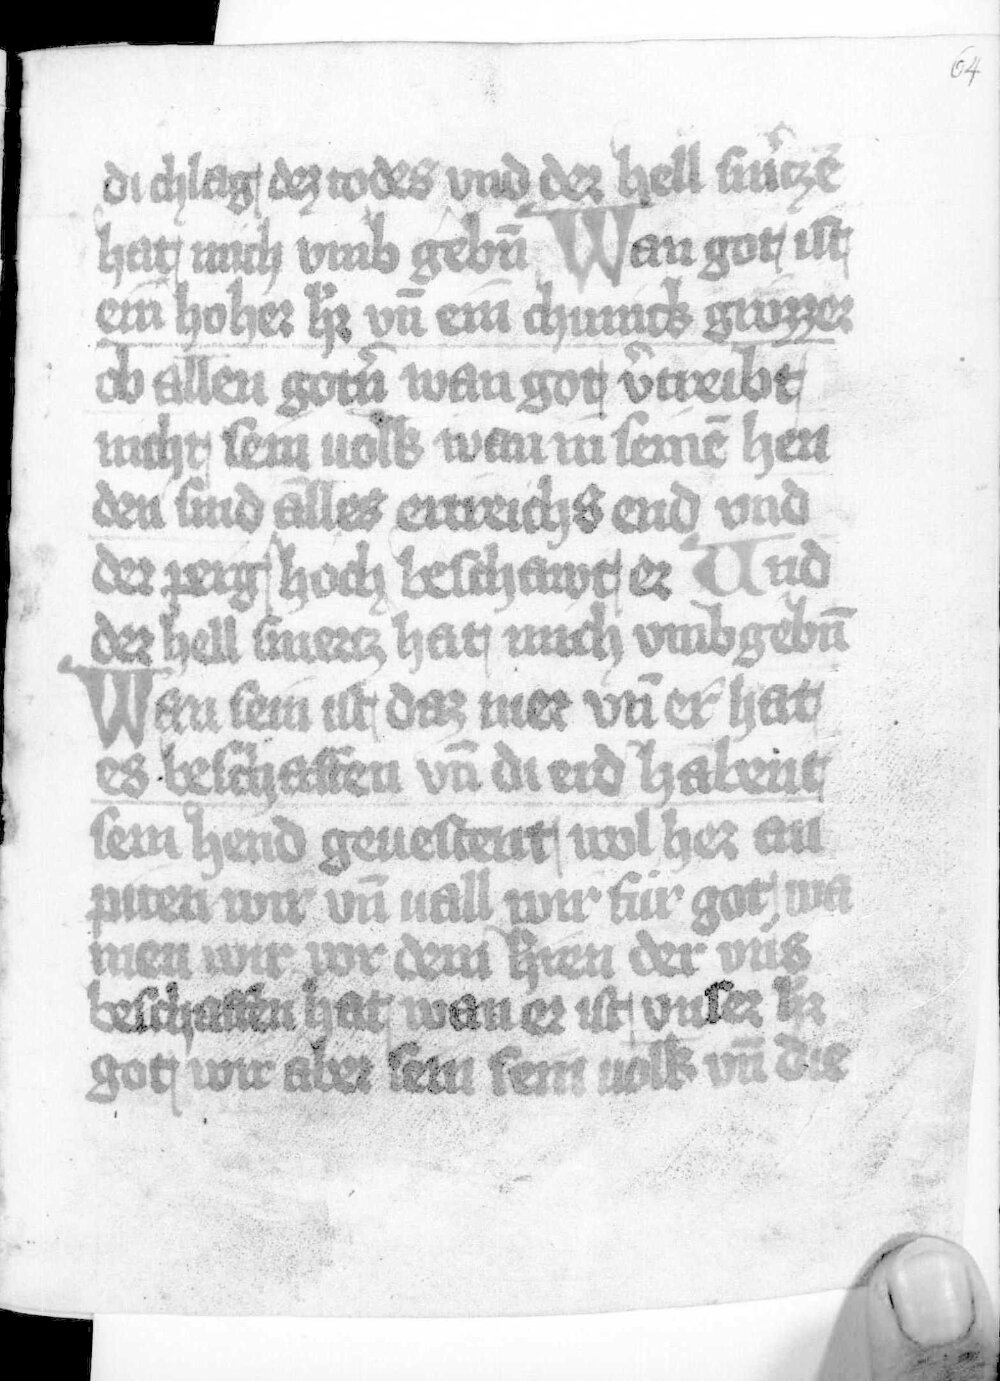 64
di chlag dez todes vnd der hell smˢczē
hat mich vmb gebn̄ Wan got ist
ein hoher hˢr vn̄ ein chunick grözzer
ob allen gotnˢ wan got vˢtreibt
nicht sein uolk wan in seinē hen
den sind alles ertreichs end vnd
der perig hoch beschawt er Und
der hell smertz hat mich vmbgebn̄
Wan sein ist daz mer vn̄ er hat
es beschaffen vn̄ di erd habent
sein hend geuestent wol her an
piten wir vn̄ uall wir für got wa
inen wir vor dem hˢren der vns
beschaffen hat wan er ist vnser hˢr
got wir aber sein sein uolk vn̄ die